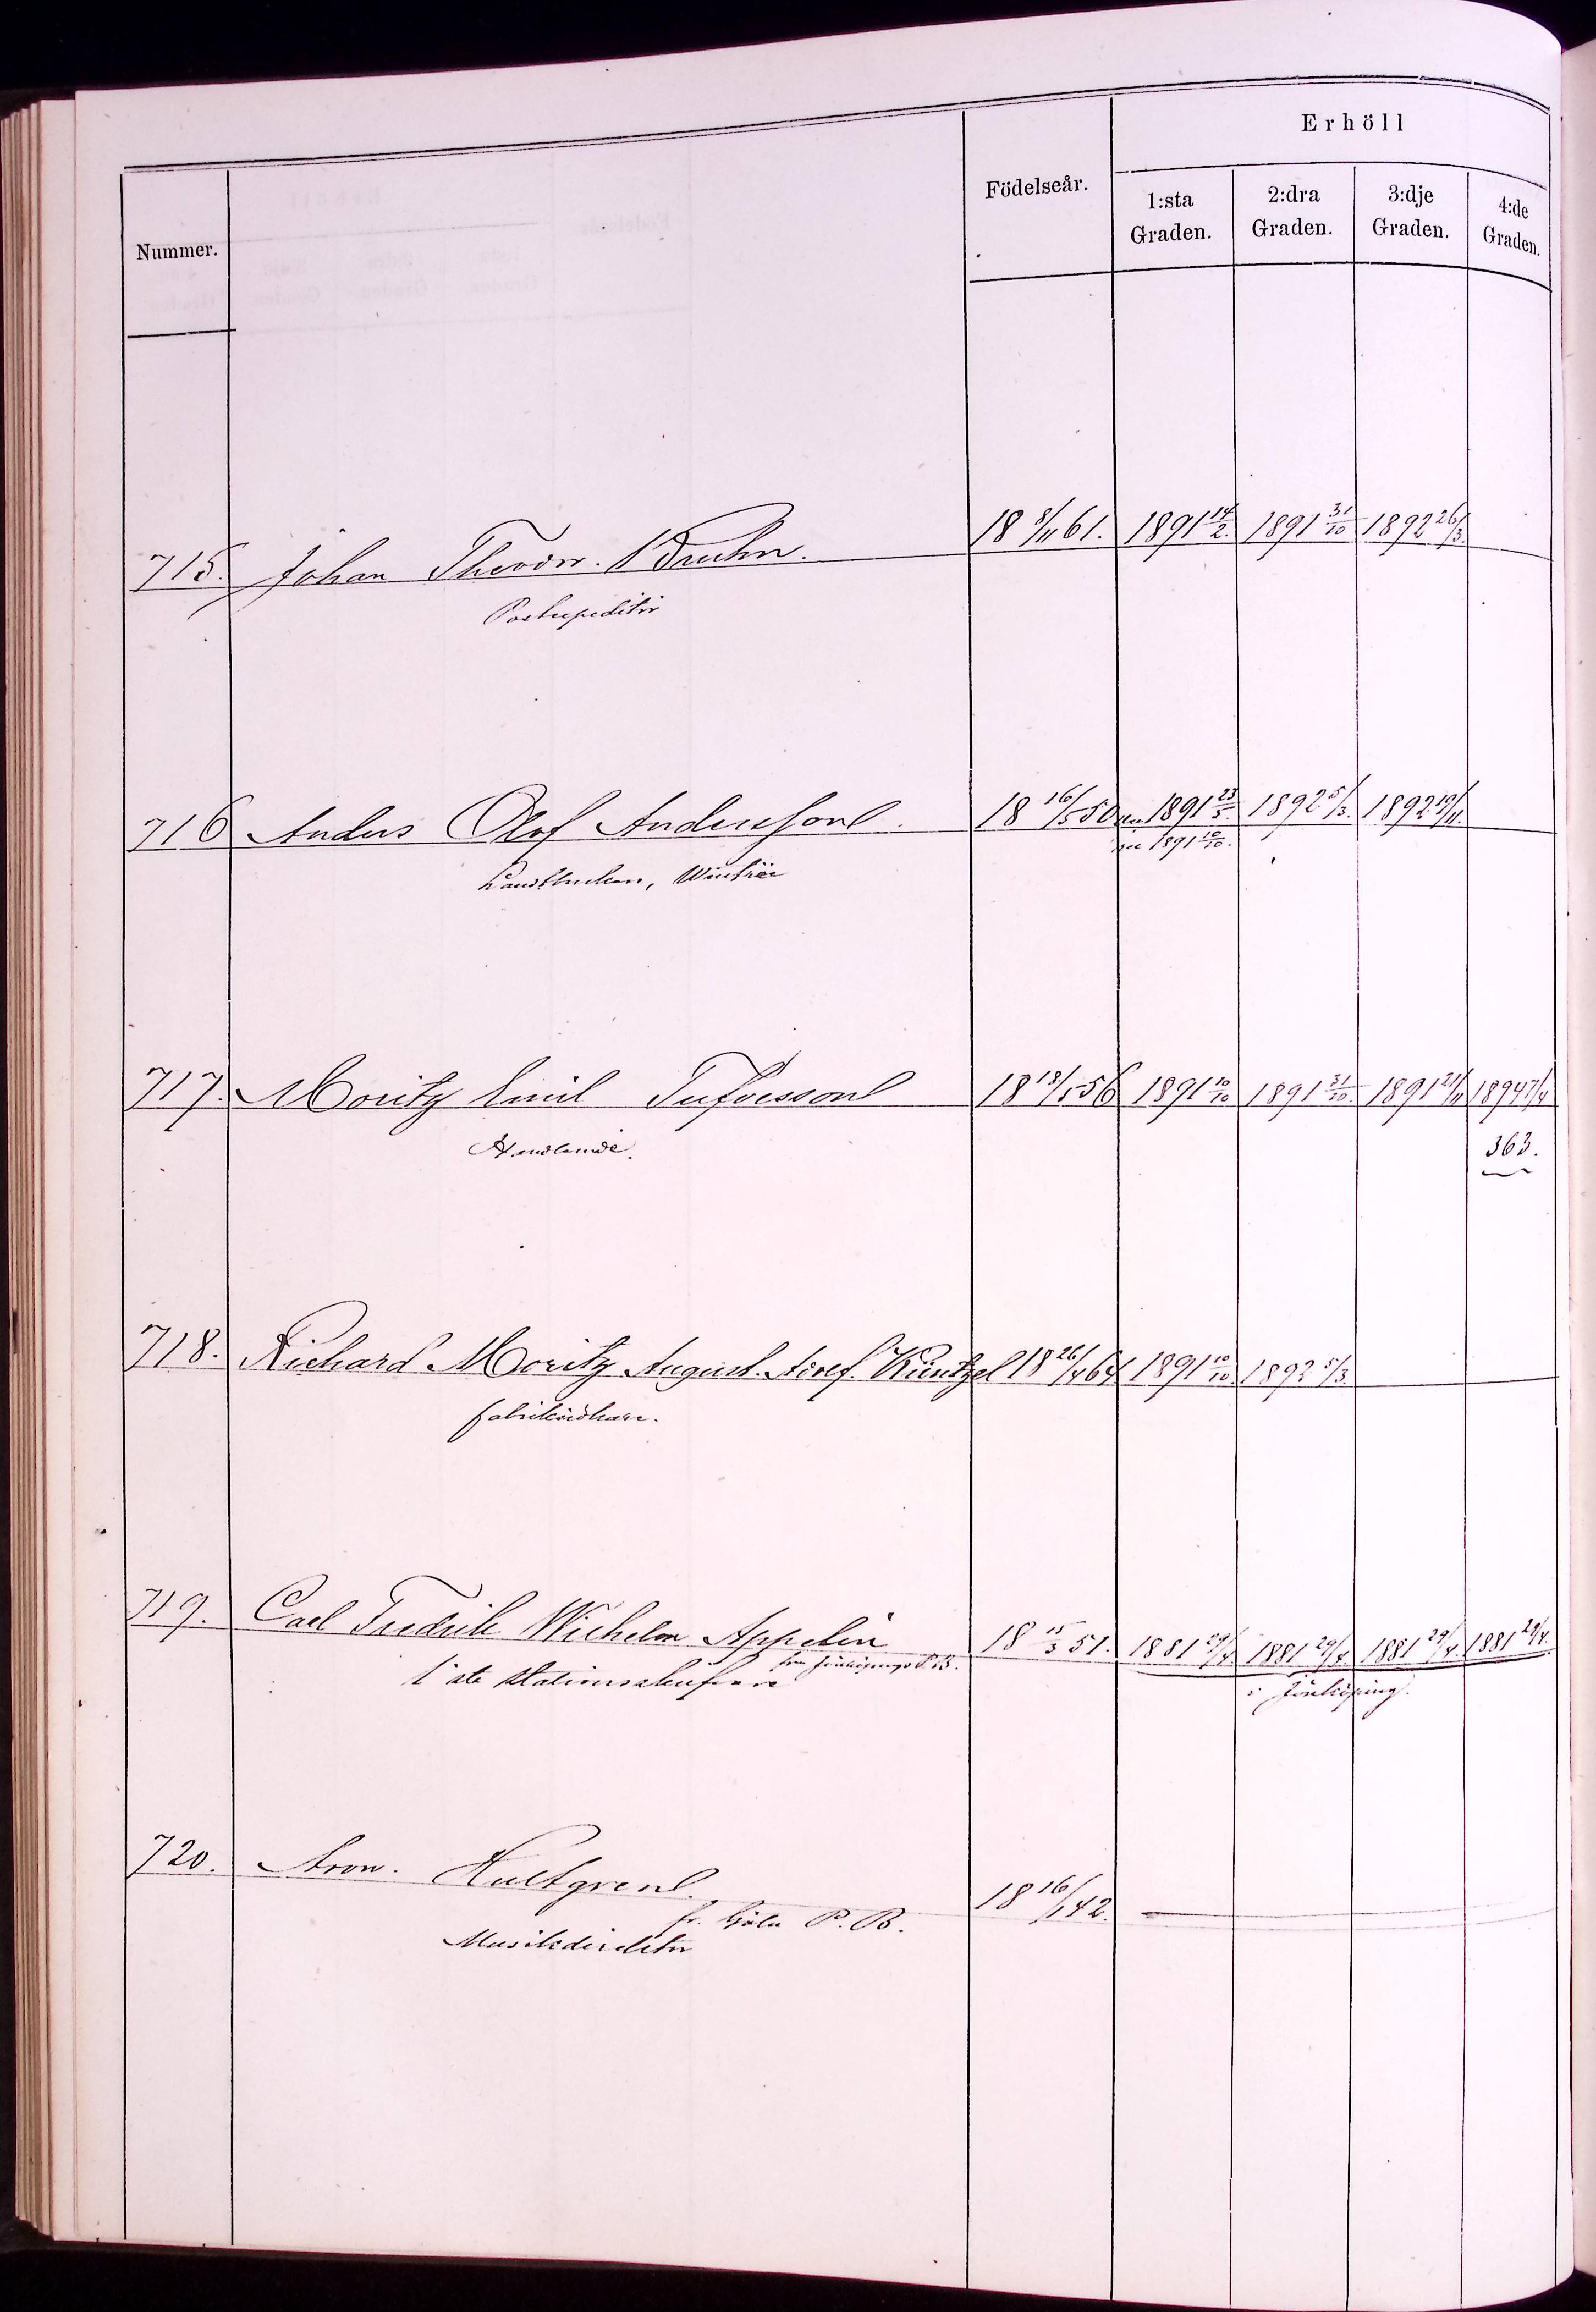 Erhöll
Nummer. Födelseår. 1:sta Graden. 2:dra Graden. 3:dje Graden. 4:de Graden.
715. Johan Theodor. Bruhn. 18 8/11 61. 1891 14/2. 1891 31/10 1892 26/3.
Postexpeditör
716 Anders Olof Andersson. 18 16/5 50 1891 23/5. 1892 5/3. 1892 19/11.
1891 10/10.
Landtbrukare,
717. Moritz Emil Tufvesson 18 18/5 56 1891 10/10 1891 31/10. 1891 21/11 1894 7/4
Handlande. 363.
718. Richard Moritz August. Adolf. Küntzel 18 26/4 64 1891 10/10. 1892 5/3.
Fabriksidkare.
719. Carl Fredrik Wilhelm Appelin 18 15/3 51. 1881 29/4 1881 29/4 1881 29/4. 1881 29/4.
från Jönköpings P. B.
1ste Stationsskrifvare i Jönköping.
720. Aron. Hultgren. 18 16/1 42. —
fr. P. B.
Musikdirektör